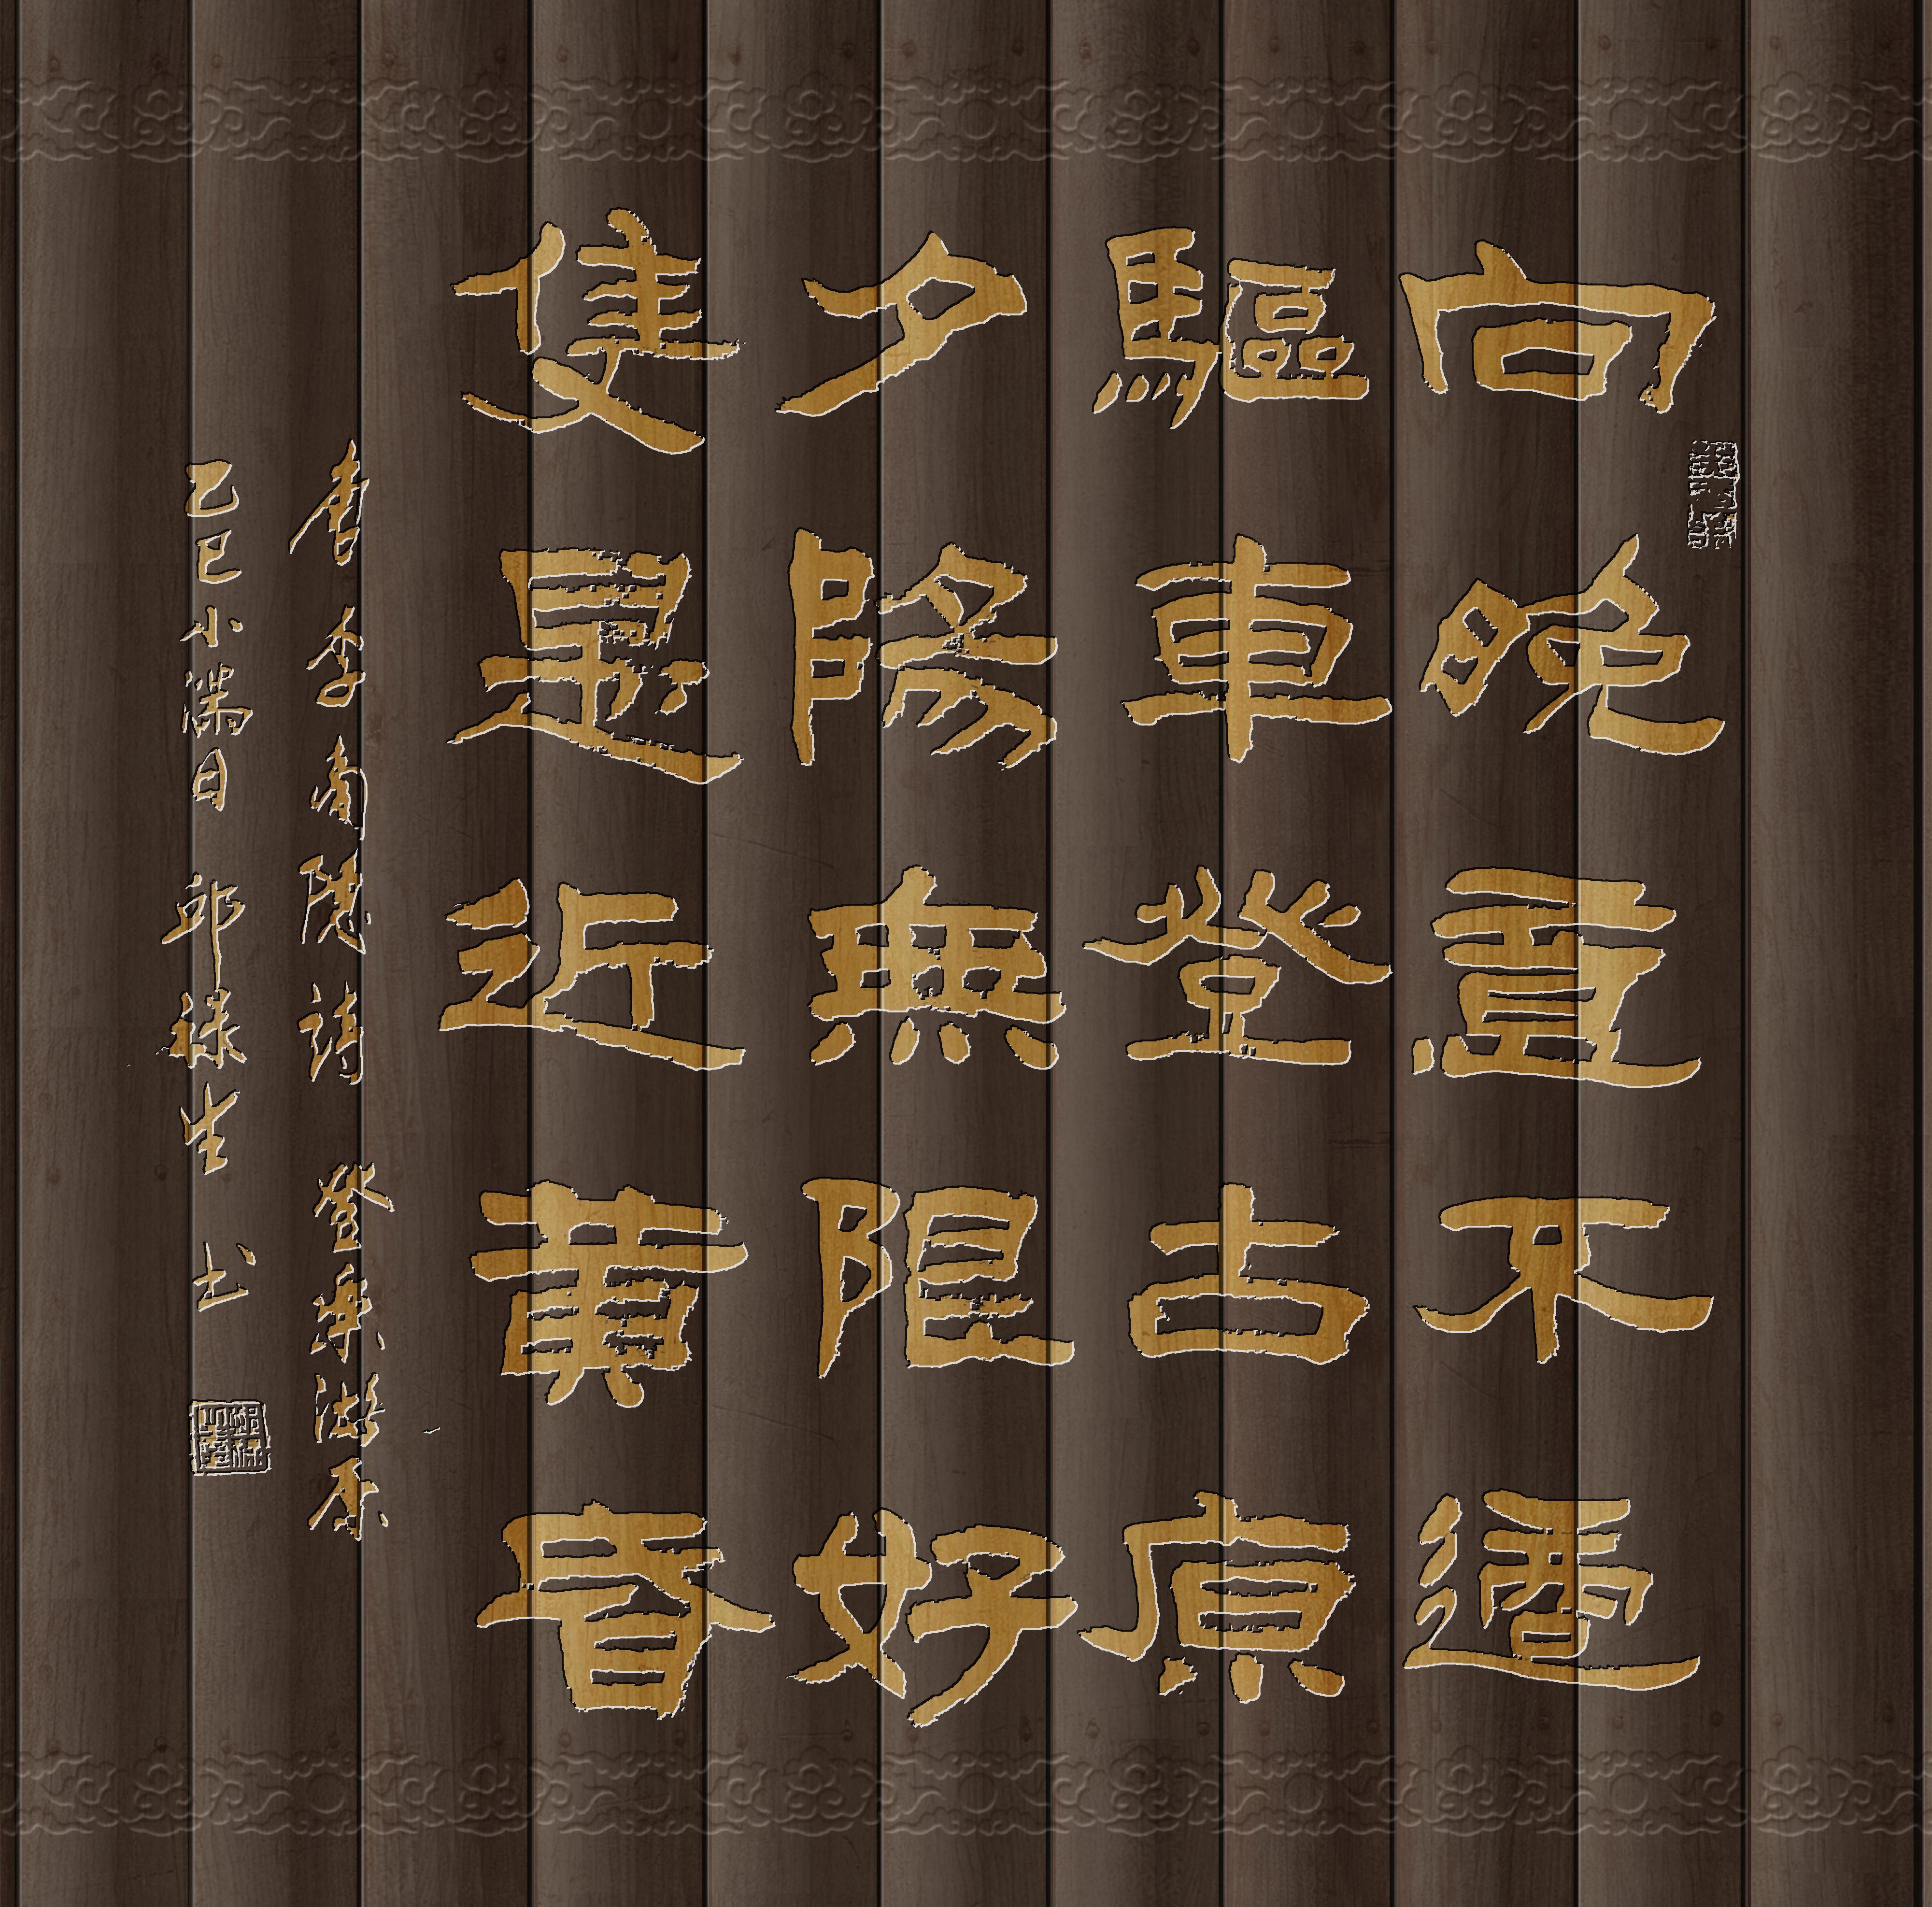 向晚意不適
驅車登古原
夕陽無限好
隻是近黄昏
唐李商隱詩 登樂游原
乙巳小滿日 邱祿生 书